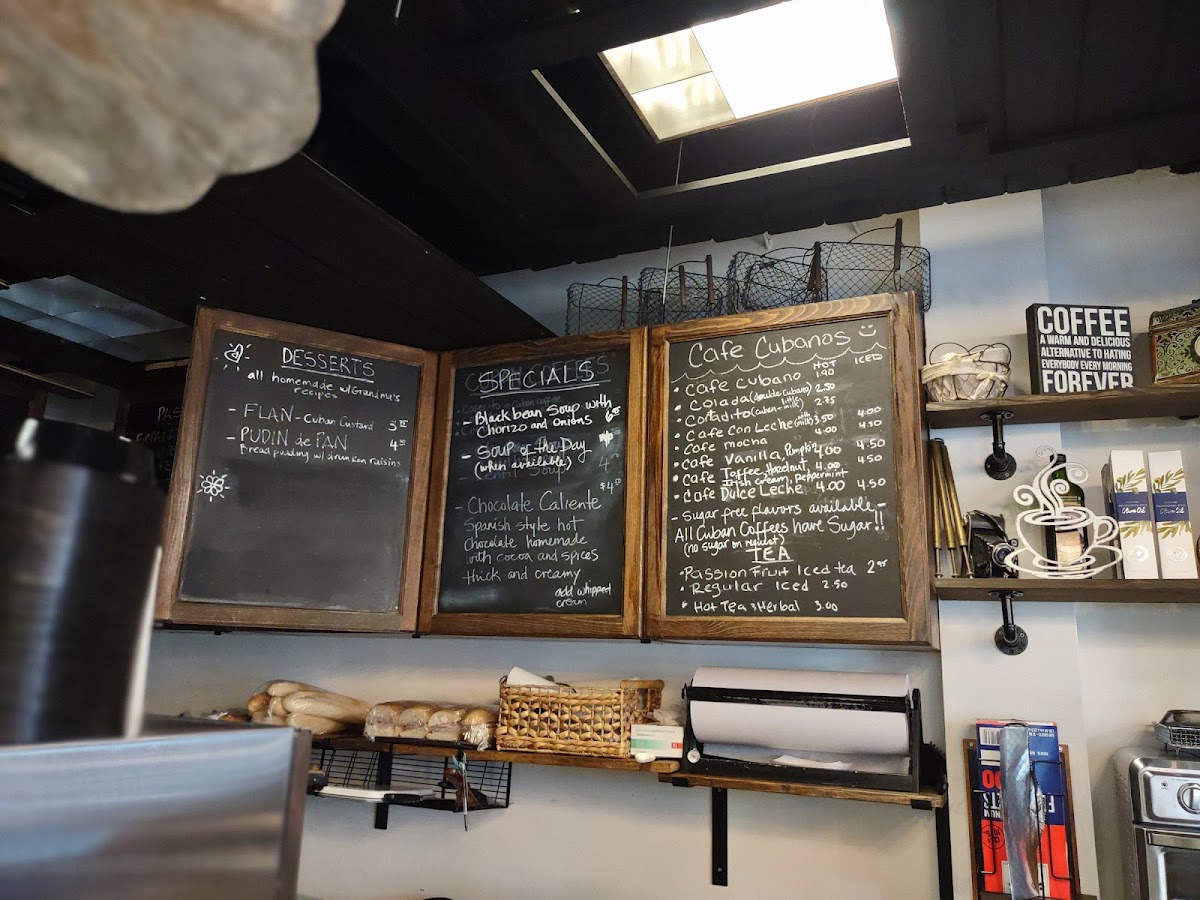 DESSERTS
all homemade w/Grandma's
recipes
- FLAN - Cuban Custard 5
- PUDIN de PAN 4
Bread pudding w/ drunken raisins
SPECIALS
- Black bean Soup with
Chorizo and Onions 6
- Soup of the Day
(when available)
$4
- Chocolate Caliente
Spanish style hot
Chocolate homemade
with cocoa and spices
thick and creamy
add whipped
cream
Cafe Cubanos
HOT ICED
• Cafe Cubano 1.90
• Colada (double Cubano) 2.50
• Cortadito (Cuban + little milk) 2.75
• Cafe Con Leche (with milk) 3.50 4.00
• Cafe mocha 4.00 4.50
• Cafe Vanilla, Pumpkin 4.00 4.50
• Cafe Toffee, Hazelnut, 4.00 4.50
Irish cream, Peppermint
• Cafe Dulce Leche 4.00 4.50
- Sugar free flavors available -
All Cuban Coffees have Sugar!!
(no sugar on request)
TEA
• Passion Fruit Iced tea
• Regular Iced 2.50
• Hot Tea + Herbal 3.00
COFFEE
A WARM AND DELICIOUS
ALTERNATIVE TO HATING
EVERYBODY EVERY MORNING
FOREVER
Olive Oil
Olive Oil